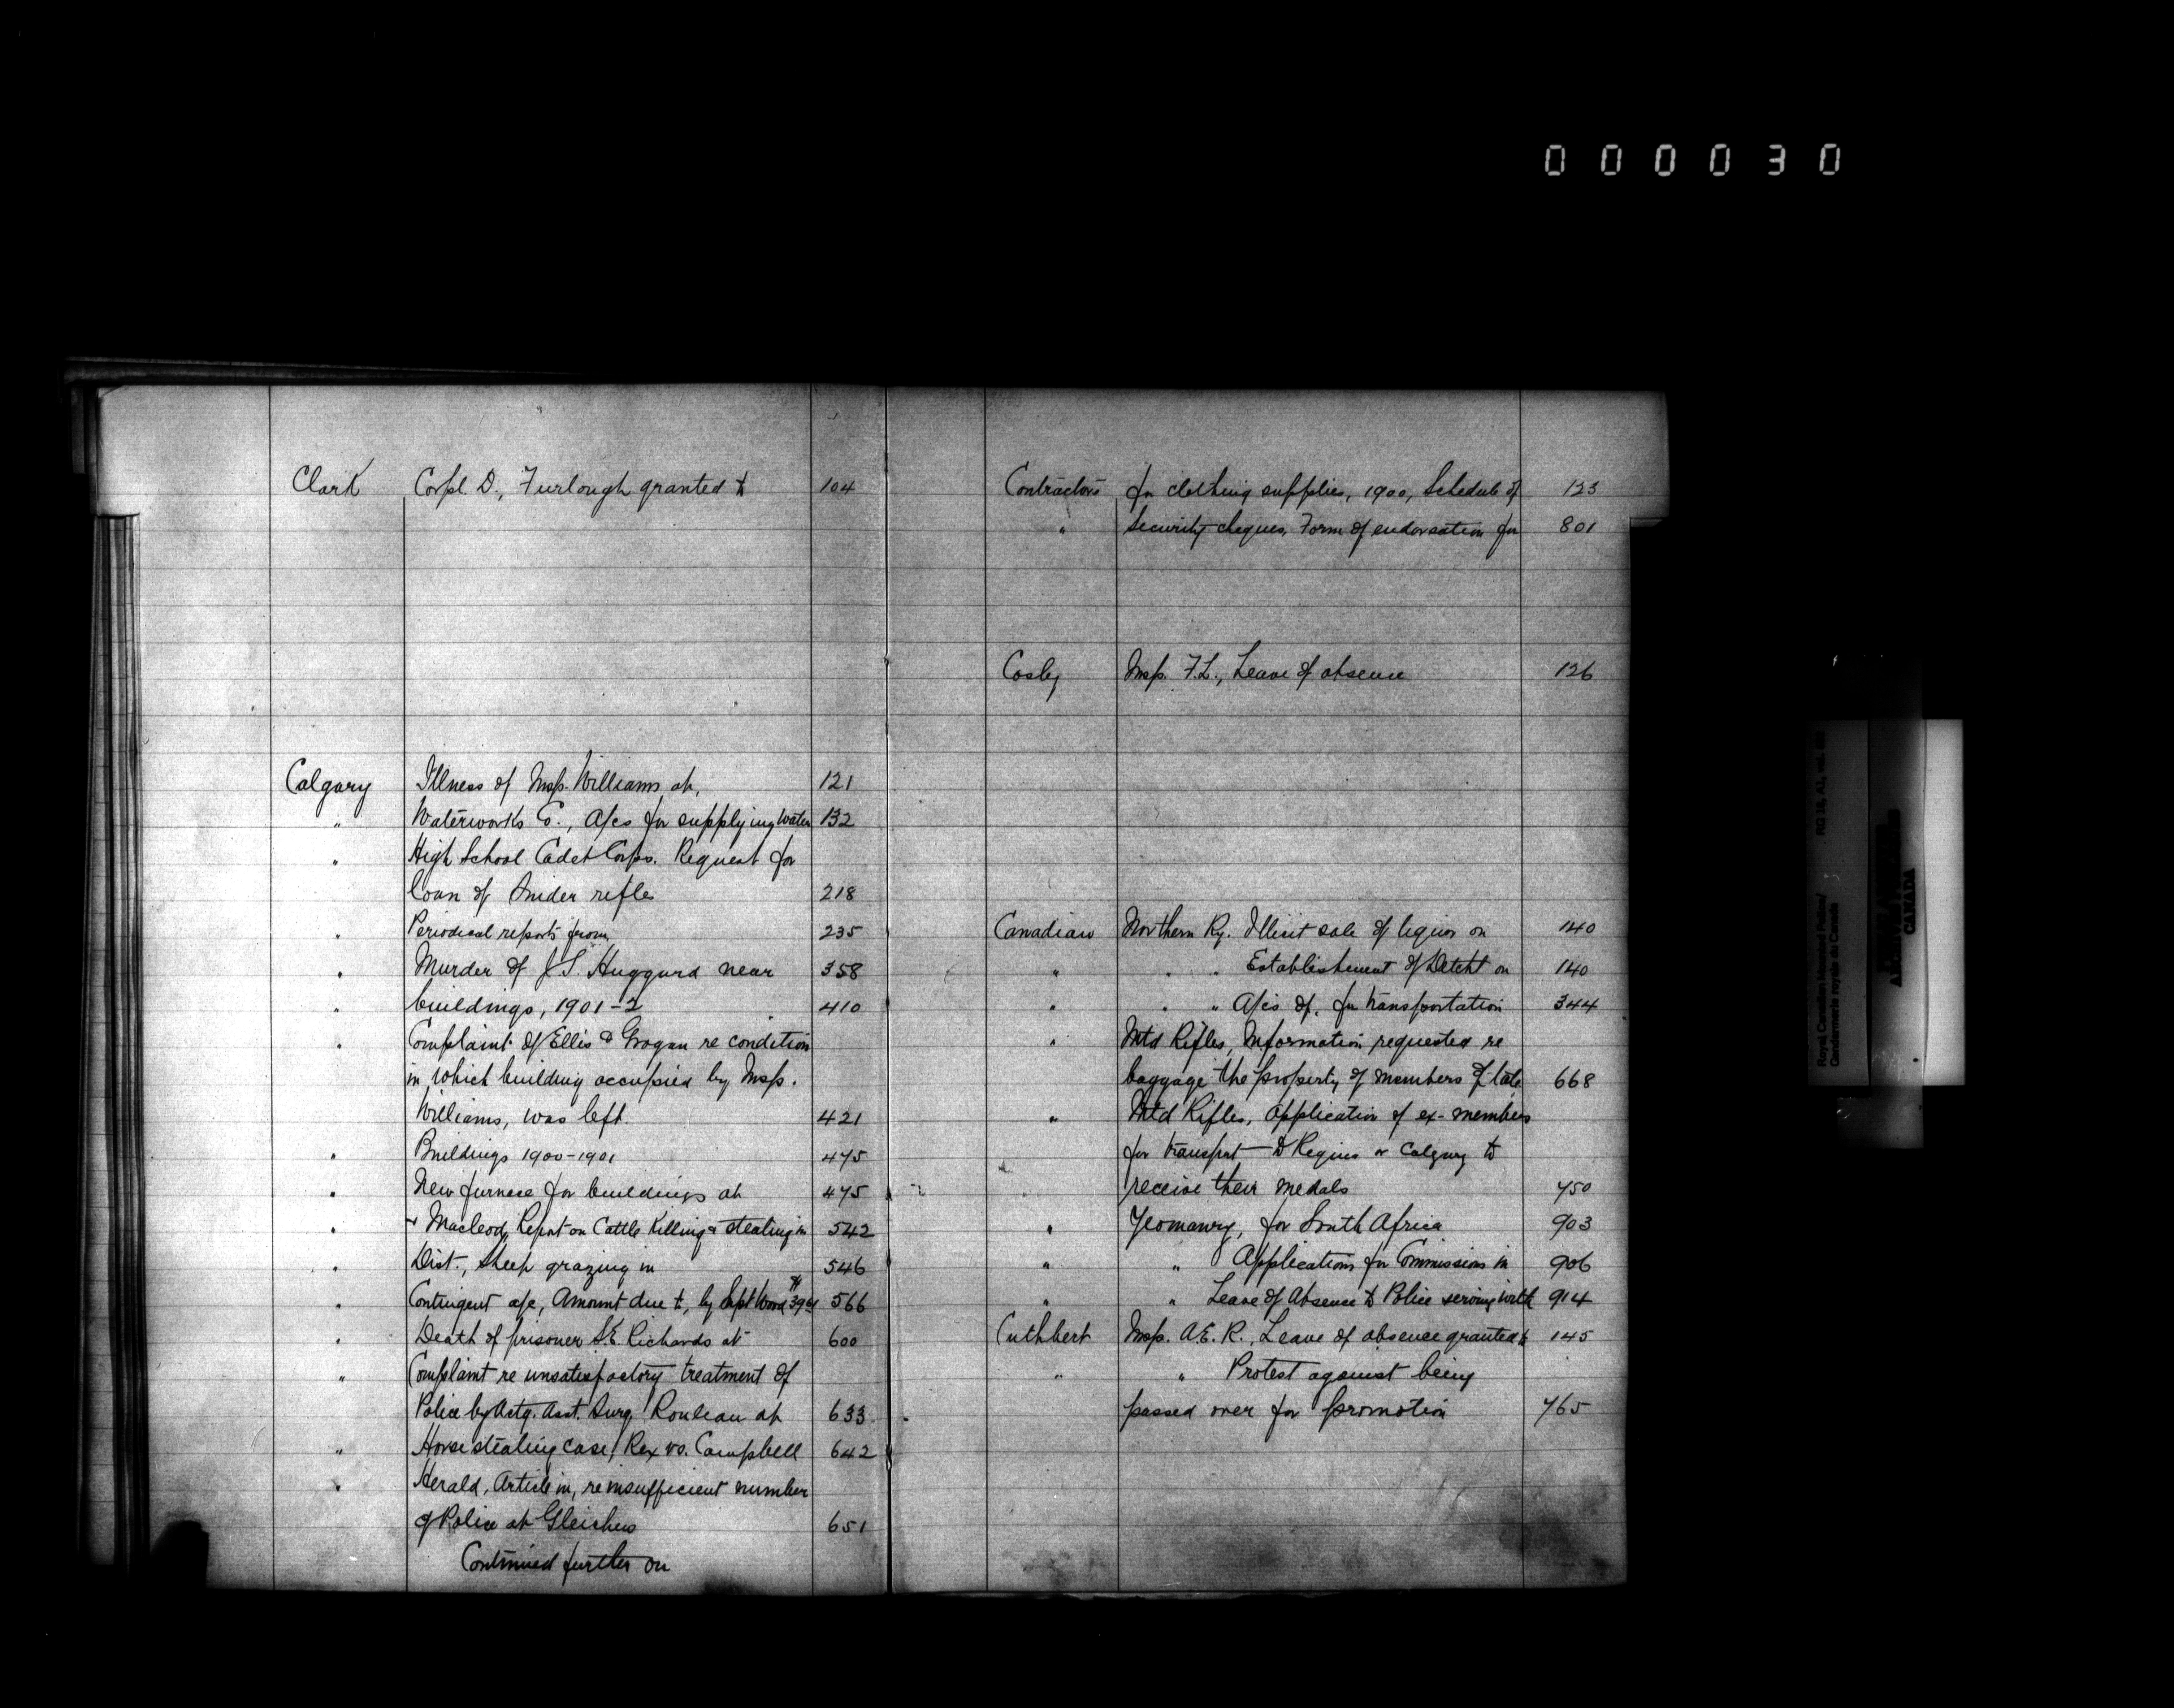 000030
Clark Corpl. D., Furlough granted to 104
Calgary Illness of Insp. Williams at, 121
" Waterworks Co., A/cs for supplying water 132
" High School Cadet Corps. Request for
loan of Snider rifles 218
" Periodical reports from 235
" Murder of J.S. Huggard near 358
" buildings, 1901-2 410
" Complaint of Ellis & Grogan re condition
in which building occupied by Insp.
Williams, was left. 421
" Buildings 1900-1901 475
" New furnace for buildings at 475
" & Macleod, Report on Cattle Killing & stealing in 542
" Dist., Sheep grazing in 546
" Contingent a/c, Amount due to, by Supt Wood $39 566
" Death of prisoner S.E. Richards at 600
" Complaint re unsatisfactory treatment of
Police by Actg. Asst. Surg. Rouleau at 633
" Horse stealing case, Rex vs. Campbell 642
" Herald, Article in, re insufficient number
of Police at Gleichen 651
Continued further on
Contractors for clothing supplies, 1900, Schedule of 123
" Security cheques, Form of endorsation for 801
Cosby Insp. F.L., Leave of absence 126
Canadian Northern Ry. Illicit sale of liquor on 140
" " " Establishment of Detcht on 140
" " " A/cs of, for transportation 344
" Mtd Rifles, Information requested re
baggage the property of members of late 668
" Mtd Rifles, Application of ex-members
for transport to Regina or Calgary to
receive their medals 750
" Yeomanry, for South Africa 903
" " Applications for Commissions in 906
" " Leave of Absence to Police serving with 914
Cuthbert Insp. A.E.R., Leave of absence granted to 145
" " Protest against being
passed over for promotion 765
Royal Canadian Mounted Police/
Gendarmerie royale du Canada
RG 18, A1, vol.
CANADA